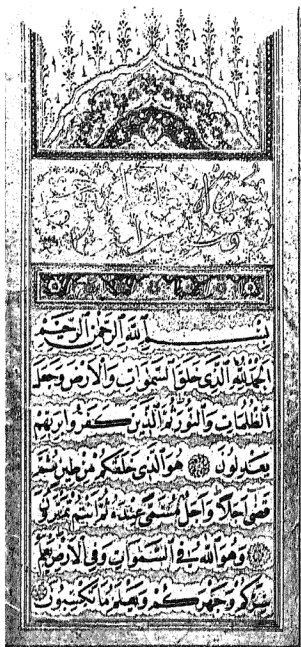 بسم الله الرحمن الرحيم
الحمد لله الذي خلق السموات والارض وجعل
الظلمات والنور ثم الذين كفروا بربهم
يعدلون هو الذي خلقكم من طين ثم
قضى اجلا واجل مسمى عنده ثم انتم تمترون
وهو الله في السموات وفي الارض يعلم
سركم وجهركم ويعلم ما تكسبون